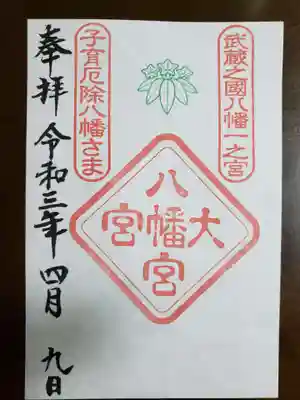 武蔵之國八幡一之宮
大八幡宮宮
子育厄除八幡さま
奉拝 令和三年 四月 九日